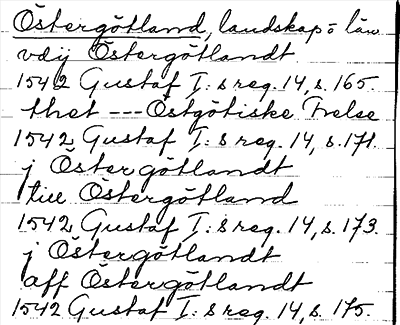 Östergötland, landskap o län
vdij Östergötlandt
1542 Gustaf I:s reg. 14, s. 165.
thet --- Östgötiske Frelse
1542 Gustaf I:s reg. 14, s. 171.
j Östergötlandt
till Östergötland
1542 Gustaf I:s reg. 14, s. 173.
j Östergötlandt
aff Östergötlandt
1542 Gustaf I:s reg. 14, s. 175.